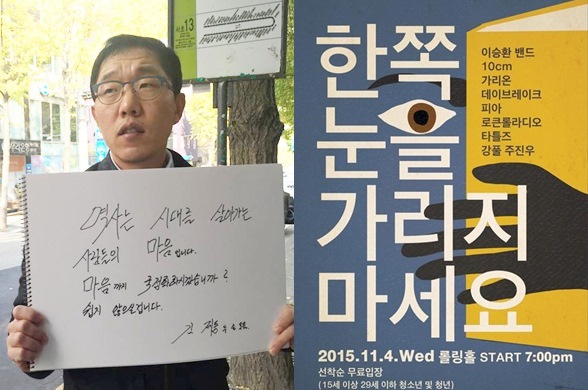 서초13
역사는 시대를 살아가는
사람들의 마음입니다.
마음까지 국정화하시겠습니까?
쉽지 않으실겁니다.
한쪽
눈을
가리지
마세요
이승환 밴드
10cm
가리온
데이브레이크
피아
로큰롤라디오
타틀즈
강풀 주진우
2015.11.4.Wed 롤링홀 START 7:00pm
선착순 무료입장
(15세 이상 29세 이하 청소년 및 청년)